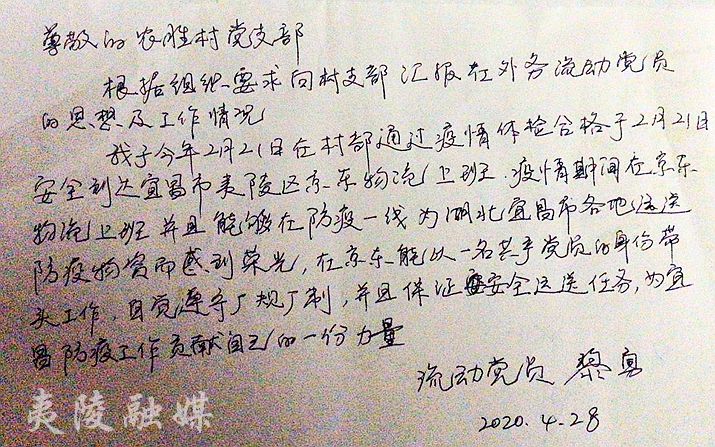 尊敬的农胜村党支部
根据组织要求向村支部汇报在外务流动党员
的思想及工作情况
我于今年2月21日在村部通过疫情体检合格于2月21日
安全到达宜昌市夷陵区京东物流上班.疫情期间在京东
物流上班并且能够在防疫一线为湖北宜昌市各地运送
防疫物资而感到荣光,在京东能以一名共产党员的身份带
头工作,自觉遵守厂规厂制,并且保证安全运送任务,为宜
昌防疫工作贡献自己的一份力量
流动党员 黎勇
2020.4.28
夷陵融媒